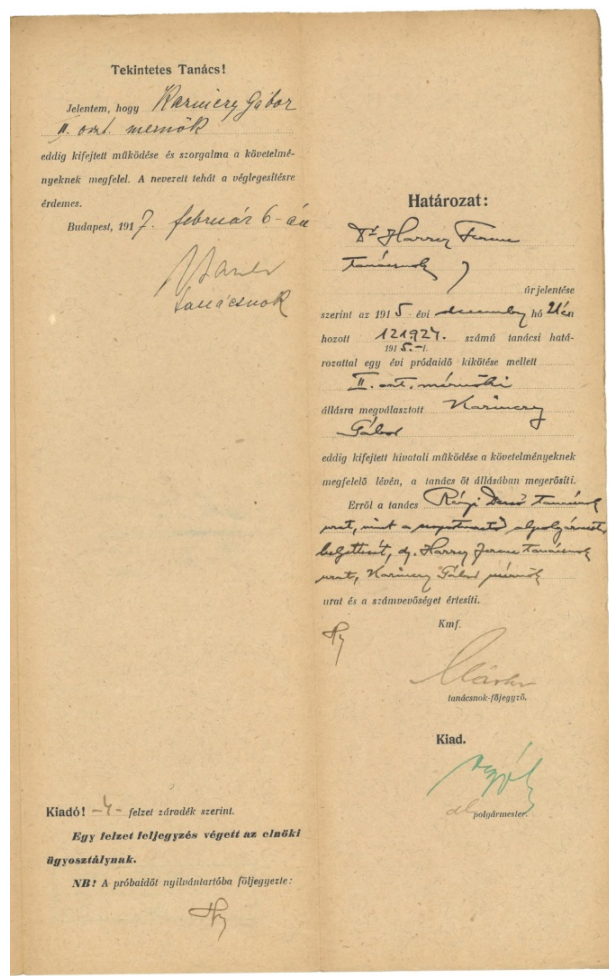 Tekintetes Tanács!
Jelentem, hogy Karinczy Gábor
II. oszt. mérnök
eddig kifejtett működése és szorgalma a követelmé-
nyeknek megfelel. A nevezett tehát a véglegesitésre
érdemes.
Budapest, 1917. február 6-án
tanácsnok
Kiadó! -4- felzet záradék szerint.
Egy felzet feljegyzés végett az elnöki
ügyosztálynak.
NB! A próbaidőt nyilvántartóba följegyezte:
Hy
Határozat:
Dr Harrer Ferenc
tanácsnok
úr jelentése
szerint az 1915 évi december hó 21én
hozott 121927. számú tanácsi hatá-
1915.-I.
rozattal egy évi pródaidő kikötése mellett
II. oszt. mérnöki
állásra megválasztott Karinczy
Gábor
eddig kifejtett hivatali működése a követelményeknek
megfelelő lévén, a tanács őt állásában megerősiti.
Erről a tanács Rényi Dezső tanácsnok
urat, mint a alpolgármester
helyettesét, dr. Harrer Ferenc tanácsnok
urat, Karinczy Gábor mérnök
urat és a számvevőséget értesiti.
Hy
Kmf.
tanácsnok-főjegyző.
Kiad.
alpolgármester.